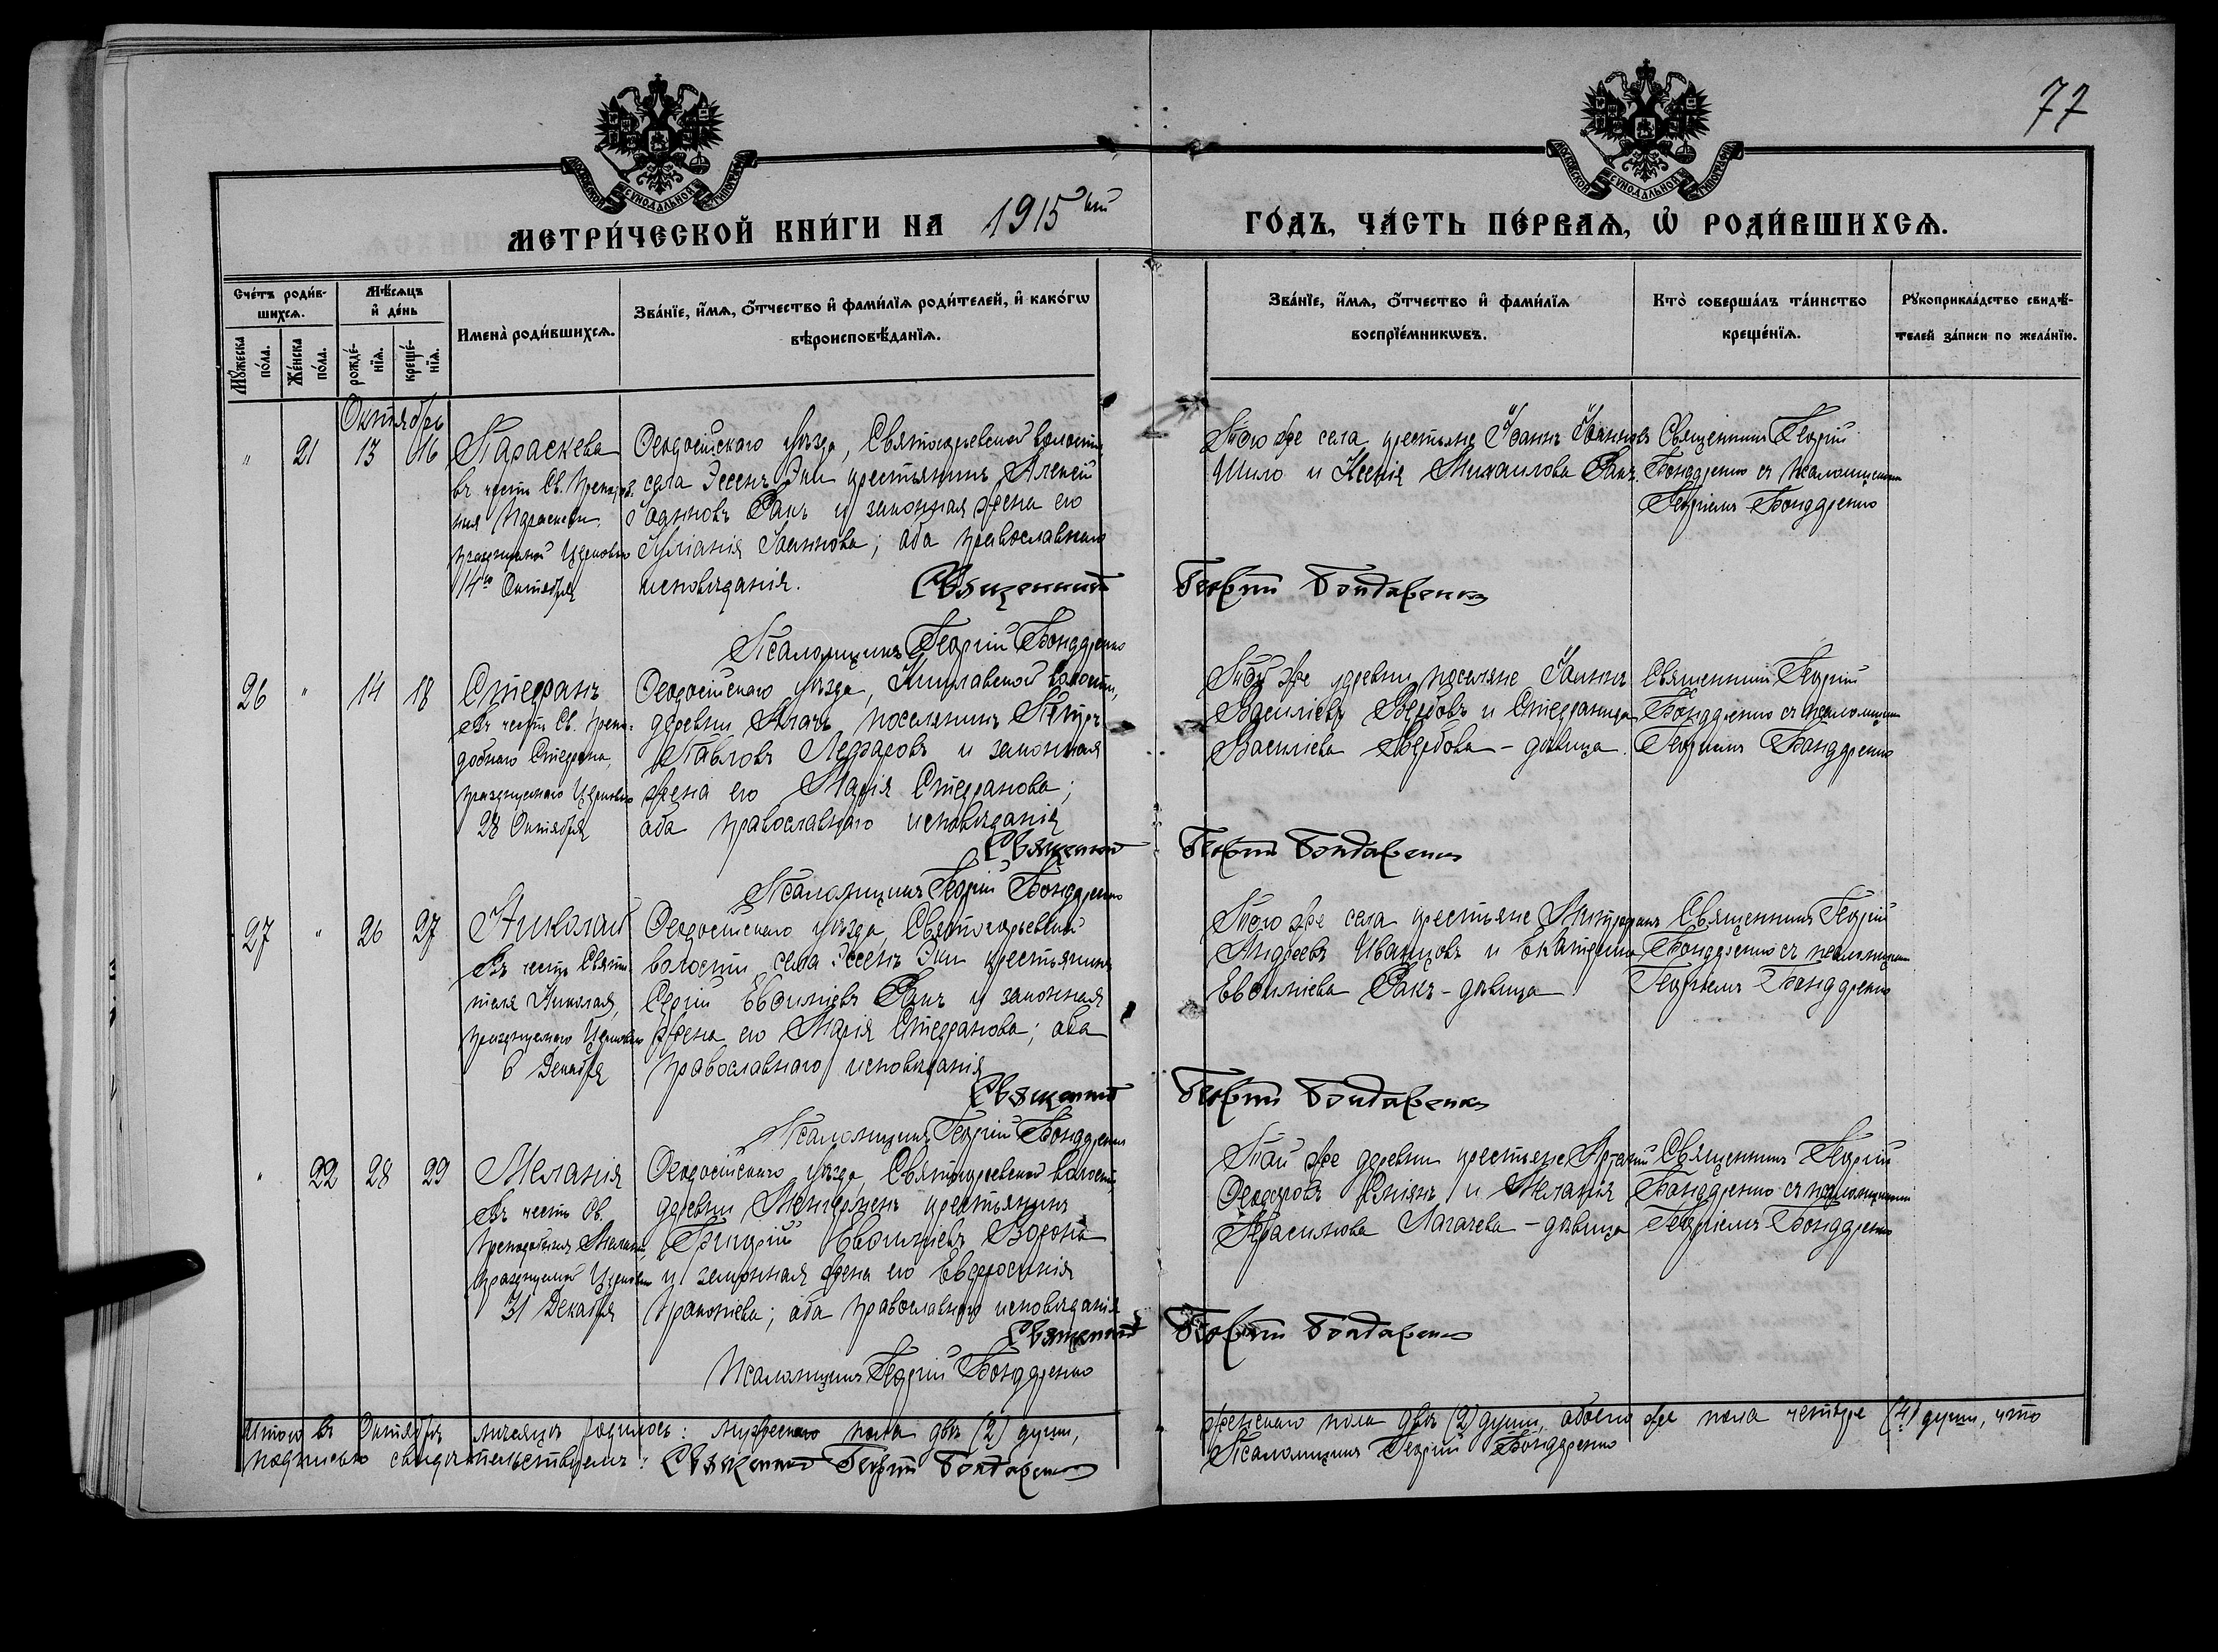 77
МЕТРИ́ЧЕСКОЙ КНИ́ГИ НА 1915ый ГО́ДЪ, ЧА́СТЬ ПЕ́РВАѦ, Ѡ҆ РОДИ́ВШИХСѦ.
Сче́тъ роди́вшихсѧ.
Мꙋ́жеска по́ла.
Же́нска по́ла.
Мѣ́сѧцъ и҆ де́нь
рожде́нїѧ.
креще́нїѧ.
Имена̀ роди́вшихсѧ.
Зва́нїе, и҆́мѧ, ѻ҆́тчество и҆ фами́лїѧ роди́телей, и҆ како́гѡ
вѣроисповѣ́данїѧ.
Зва́нїе, и҆́мѧ, ѻ҆́тчество и҆ фами́лїѧ
воспрїе́мникѡвъ.
Кто̀ соверша́лъ та́инство
креще́нїѧ.
Рꙋкоприкла́дство свидѣ́-
телей за́писи по жела́нїю.
Октябрь
" 21 13 16
Параскева
въ честь Св. Преподоб-
ныя Параскевы
празднуемой Церковью
14го Октября
Ѳеодосійскаго уѣзда, Святогорьевской волости
села Эссенъ Эки крестьянинъ Алексѣй
Іоанновъ Ракъ и законная жена его
Іуліанія Іоаннова; оба православнаго
исповѣданія.
Священникъ Георгій Бондаренко
Псаломщикъ Георгій Бондаренко
Того же села крестьяне Іоаннъ Іоанновъ
Шило и Ксенія Михаилова Ракъ.
Священникъ Георгій
Бондаренко съ псаломщикомъ
Георгіемъ Бондаренко
26 " 14 18
Стефанъ
Въ честь Св. Препо-
добнаго Стефана,
празднуемаго Церковью
28 Октября
Ѳеодосійскаго уѣзда, волости,
деревни поселянинъ Петръ
Павловъ и законная
жена его Марія Стефанова;
оба православнаго исповѣданія
Священникъ Георгій Бондаренко
Псаломщикъ Георгій Бондаренко
Той же деревни поселяне Іоаннъ
Василіевъ и Стефанида
Василіева - дѣвица.
Священникъ Георгій
Бондаренко съ псаломщикомъ
Георгіемъ Бондаренко
27 " 26 27
Николай
Въ честь Святи-
теля Николая,
празднуемаго Церковью
6 Декабря
Ѳеодосійскаго уѣзда, Святогорьевской
волости села Эссенъ Эки крестьянинъ
Сергій Евфиміевъ Ракъ и законная
жена его Марія Стефанова; оба
православнаго исповѣданія
Священникъ Георгій Бондаренко
Псаломщикъ Георгій Бондаренко
Того же села крестьяне Митрофанъ
Андреевъ Иванцовъ и Екатерина
Евфиміева Ракъ - дѣвица
Священникъ Георгій
Бондаренко съ псаломщикомъ
Георгіемъ Бондаренко
" 22 28 29
Меланія
Въ честь Св.
Преподобныя Меланіи
празднуемой Церковью
31 Декабря
Ѳеодосійскаго уѣзда, Святогорьевской волости,
деревни крестьянинъ
Григорій Евфиміевъ Ворона
и законная жена его Евфросинія
Прокопіева; оба православнаго исповѣданія
Священникъ Георгій Бондаренко
Псаломщикъ Георгій Бондаренко
Той же деревни крестьяне
Ѳеодоровъ и Меланія
Герасимова - дѣвица
Священникъ Георгій
Бондаренко съ псаломщикомъ
Георгіемъ Бондаренко
Итого въ Октябрѣ мѣсяцѣ родилось: мужескаго пола двѣ (2) души, женскаго пола двѣ (2) души, обоего же пола четыре (4) души, что
подписью свидѣтельствуемъ: Священникъ Георгій Бондаренко Псаломщикъ Георгій Бондаренко